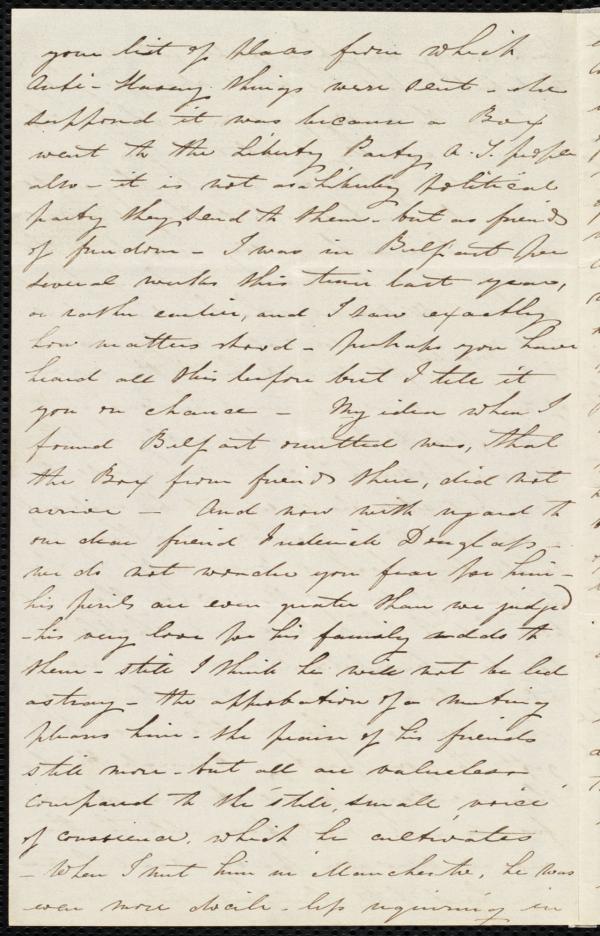 your list of places from which
Anti-Slavery things were sent - she
supposed it was because a Box
went to the Liberty Party A. S. people
also - it is not as a Liberty political
party they send to them - but as friends
of freedom - I was in Belfast for
several weeks this time last year,
or rather earlier, and I saw exactly
how matters stood - perhaps you have
heard all this before but I tell it
you on chance - My idea when I
found Belfast omitted was, that
the Box from friends there, did not
arrive - And now with regard to
our dear friend Frederick Douglass -
we do not wonder you fear for him -
his perils are even greater than we judged
- his very love for his family adds to
them - still I think he will not be led
astray - the approbation of a meeting
pleases him - the praise of his friends
still more - but all are valueless
compared to the "still, small voice"
of conscience, which he cultivates
- When I met him in Manchester, he was
even more docile - less requiring in